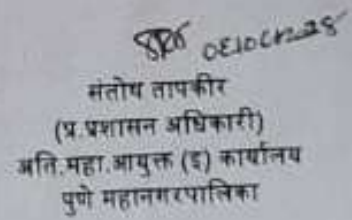 संतोष तापकीर
(प्र.प्रशासन अधिकारी)
अति.महा.आयुक्त (इ) कार्यालय
पुणे महानगरपालिका